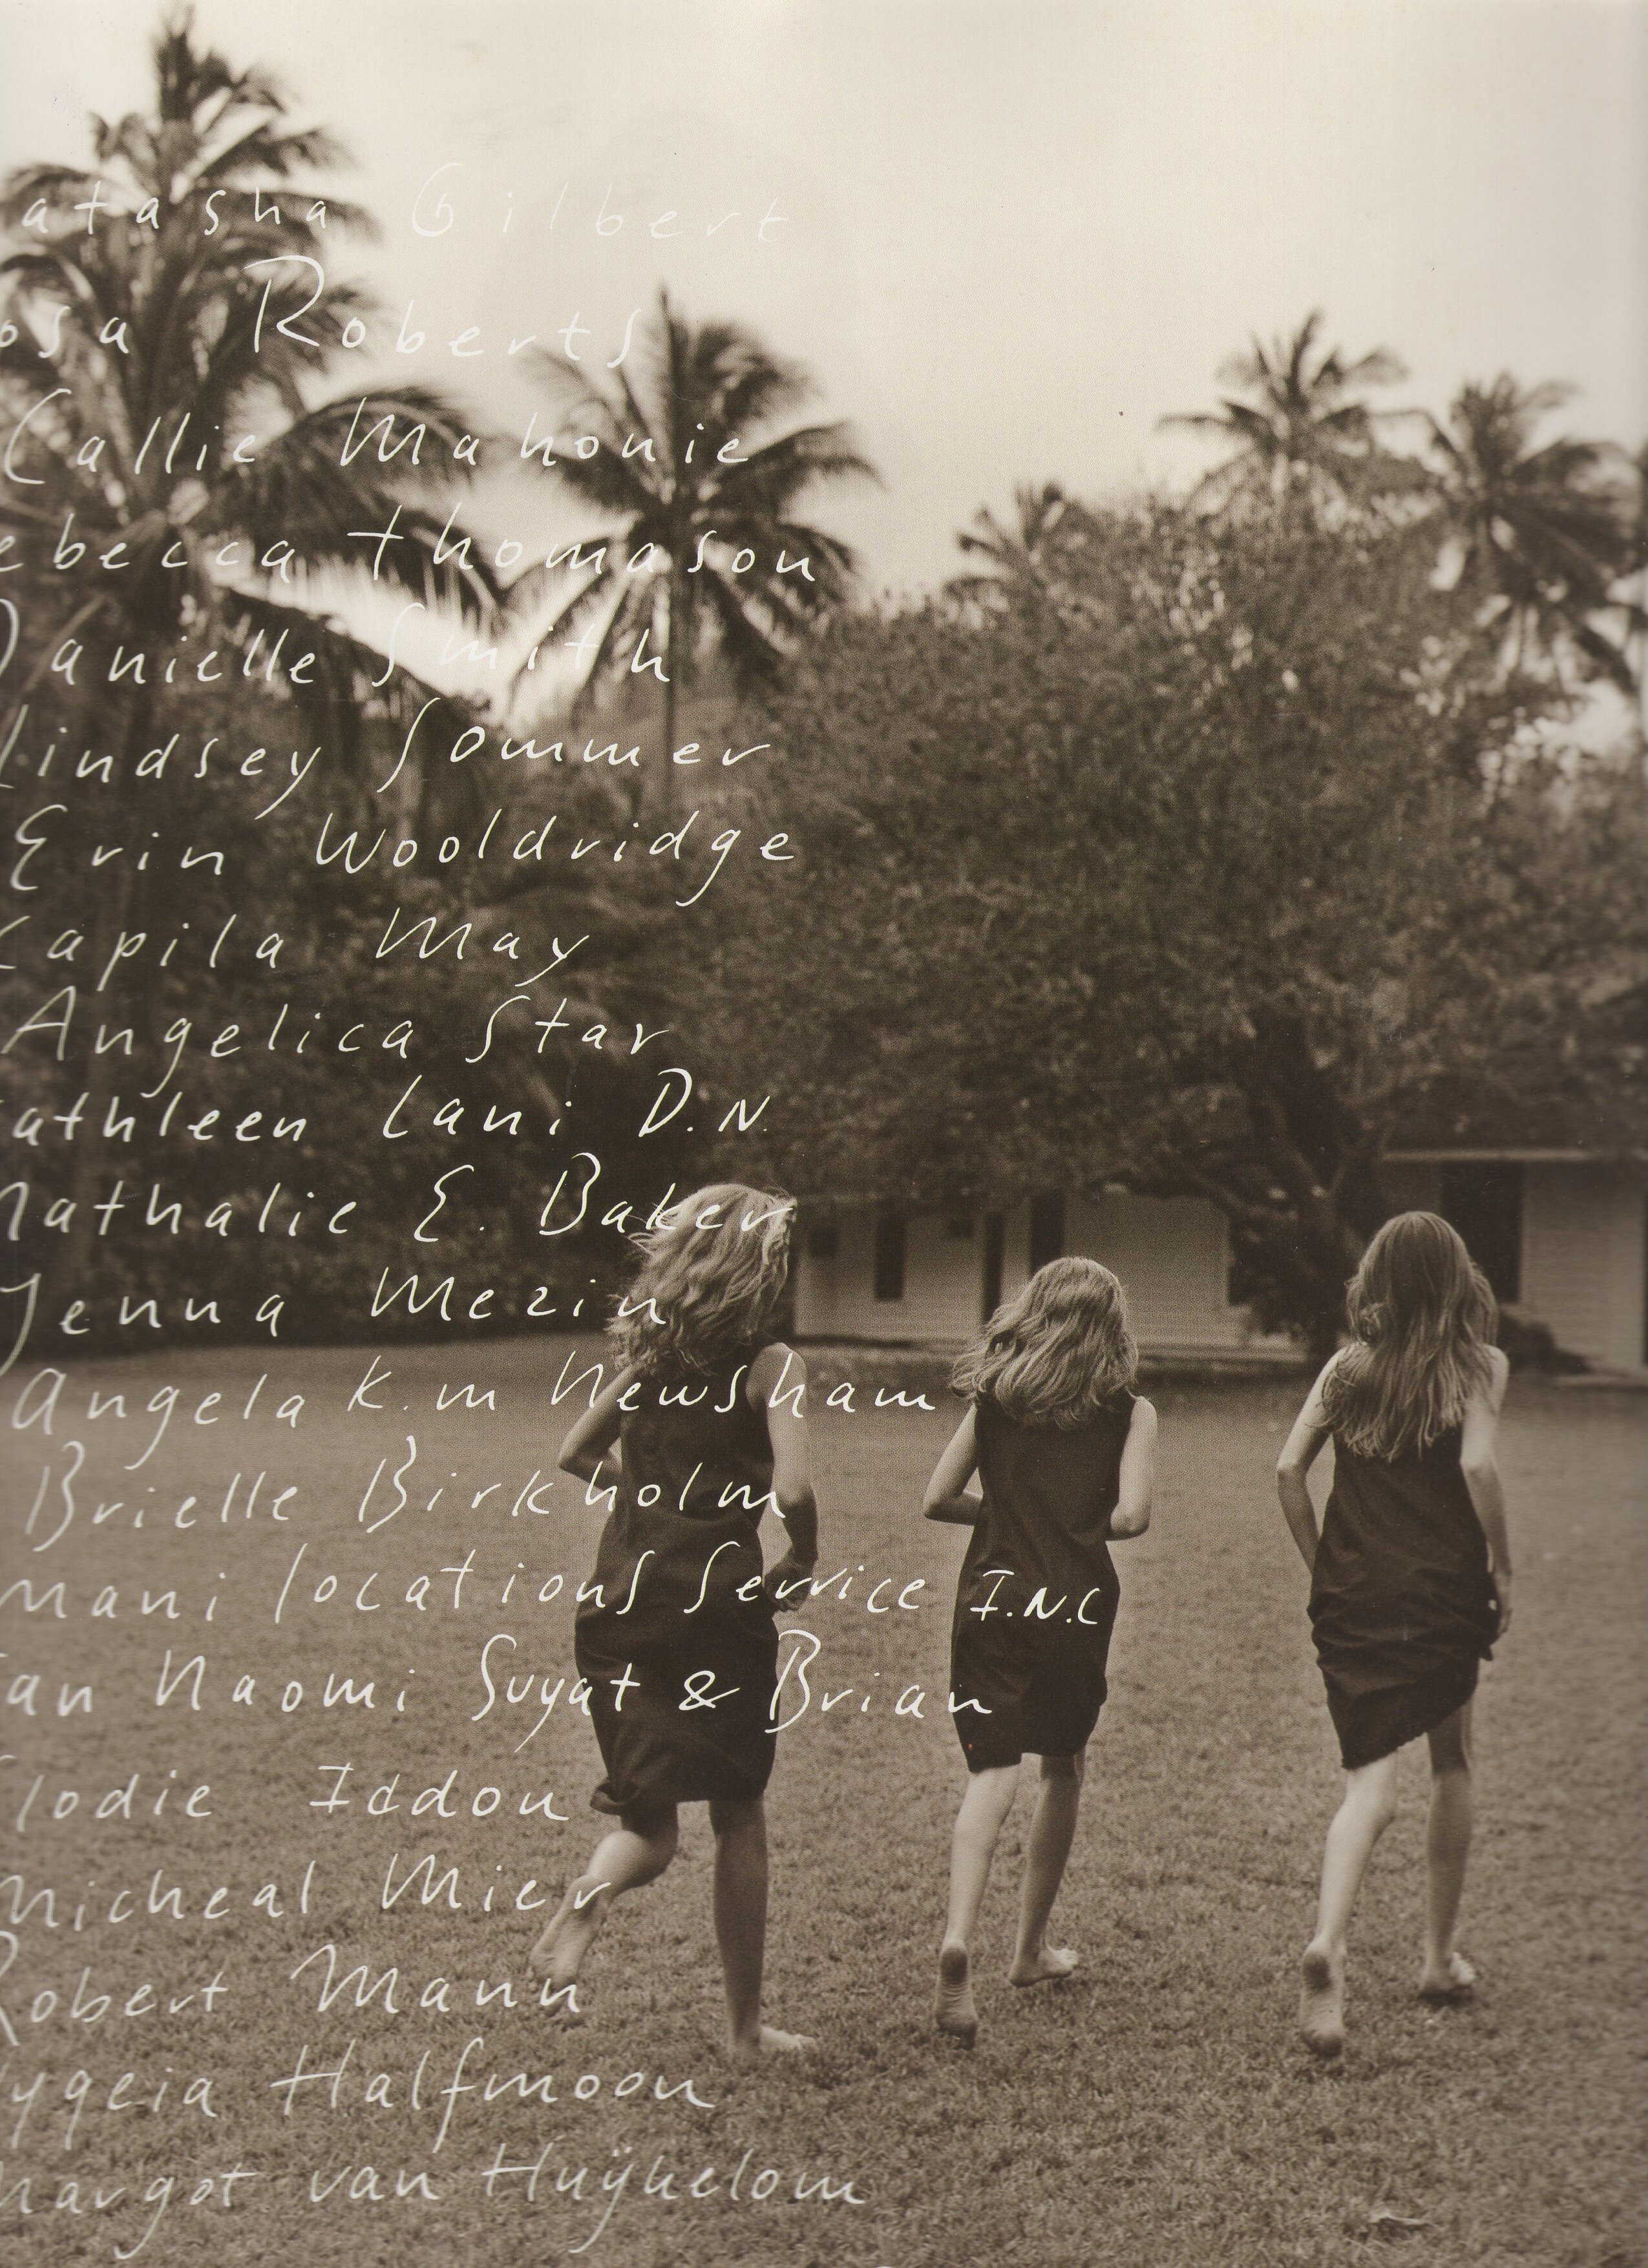 atasha Gilbert
osa Roberts
Callie Mahonie
ebecca Thomason
Danielle Smith
Lindsey Sommer
Erin Wooldridge
Kapila May
Angelica Star
athleen Lani D.N.
Nathalie E. Baker
Jenna Mezin
Angela K.m Newsham
Brielle Birkholm
mani locations Service I.N.C
an Naomi Suyat & Brian
lodie Iddou
Micheal Mier
Robert Mann
ygeia Halfmoon
Margot van Huÿkelom